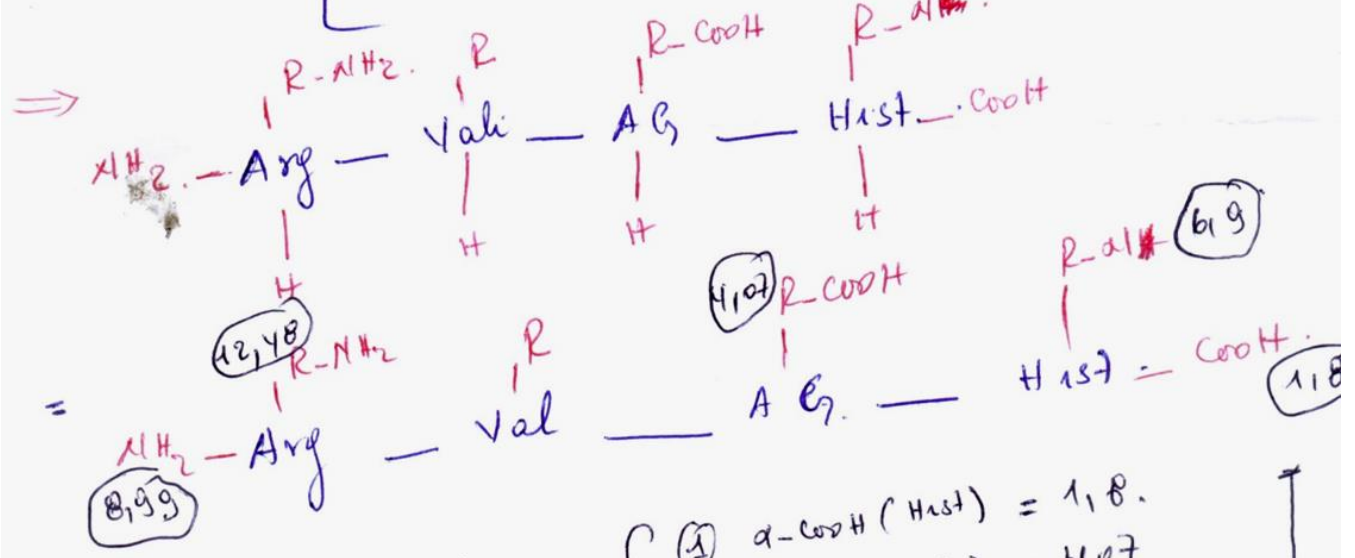 R-NH2. R R-COOH R-NH
⇒ NH2. - Arg - Vali - AG - Hist - COOH
H H H H
12,48 4,07 6,9
R-NH2 R R-COOH R-NH
= NH2 - Arg - Val - AG. - Hist - COOH.
8,99 1,8
① α-COOH (Hist) = 1,8.
4,07